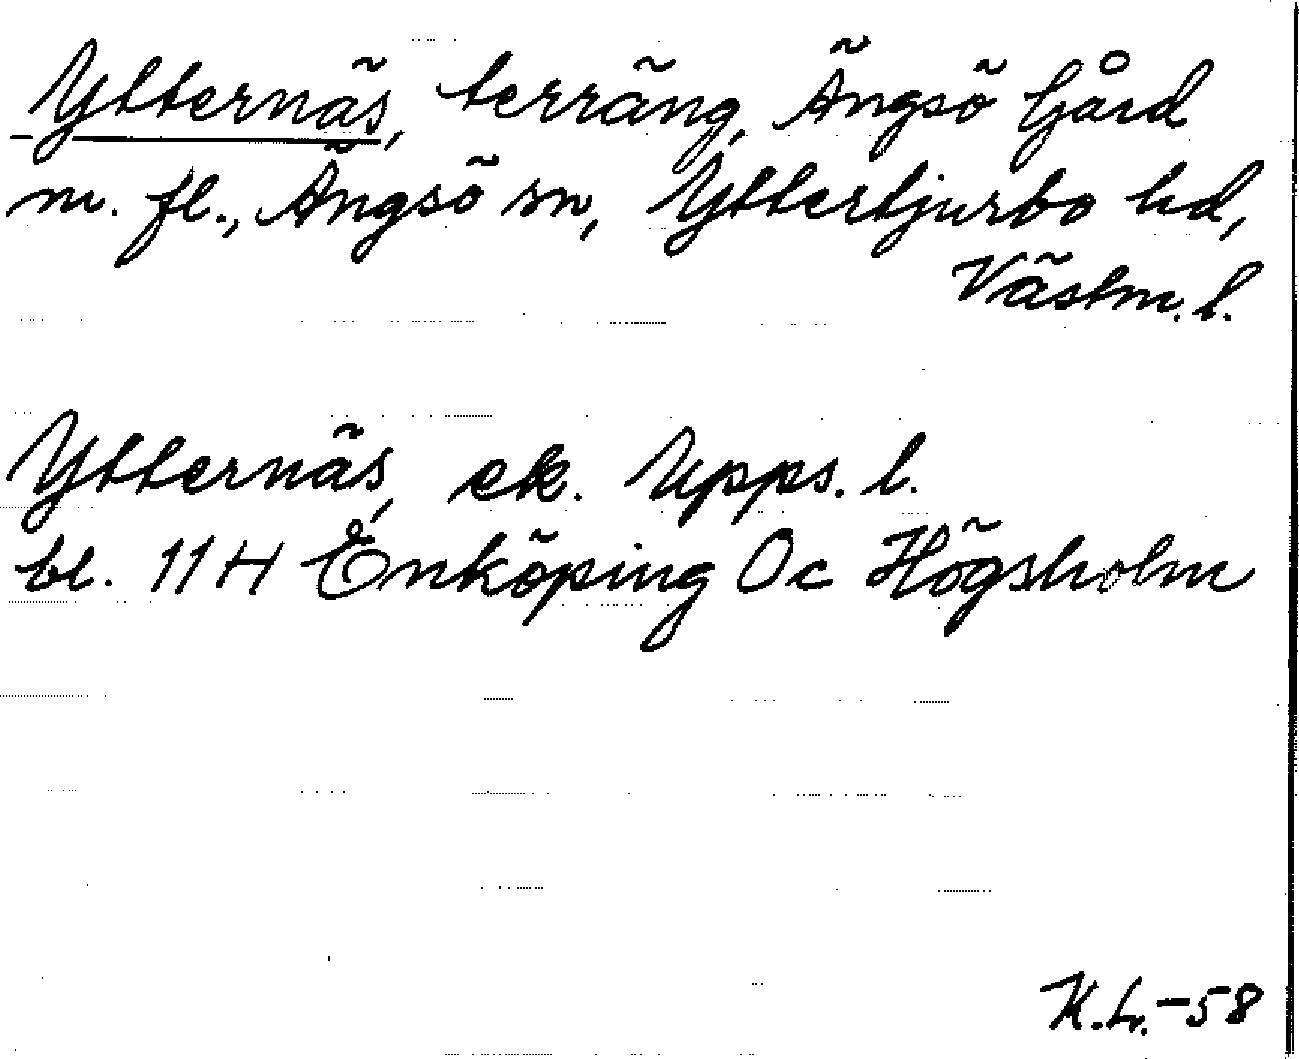 Ytternäs, terräng, Ängsö Gård
m. fl., Ängsö sn, Yttertjurbo hd,
Västm. l.
Ytternäs, ek. Upps. l.
bl. 11 H Enköping Oc Högsholm
K.L.-58